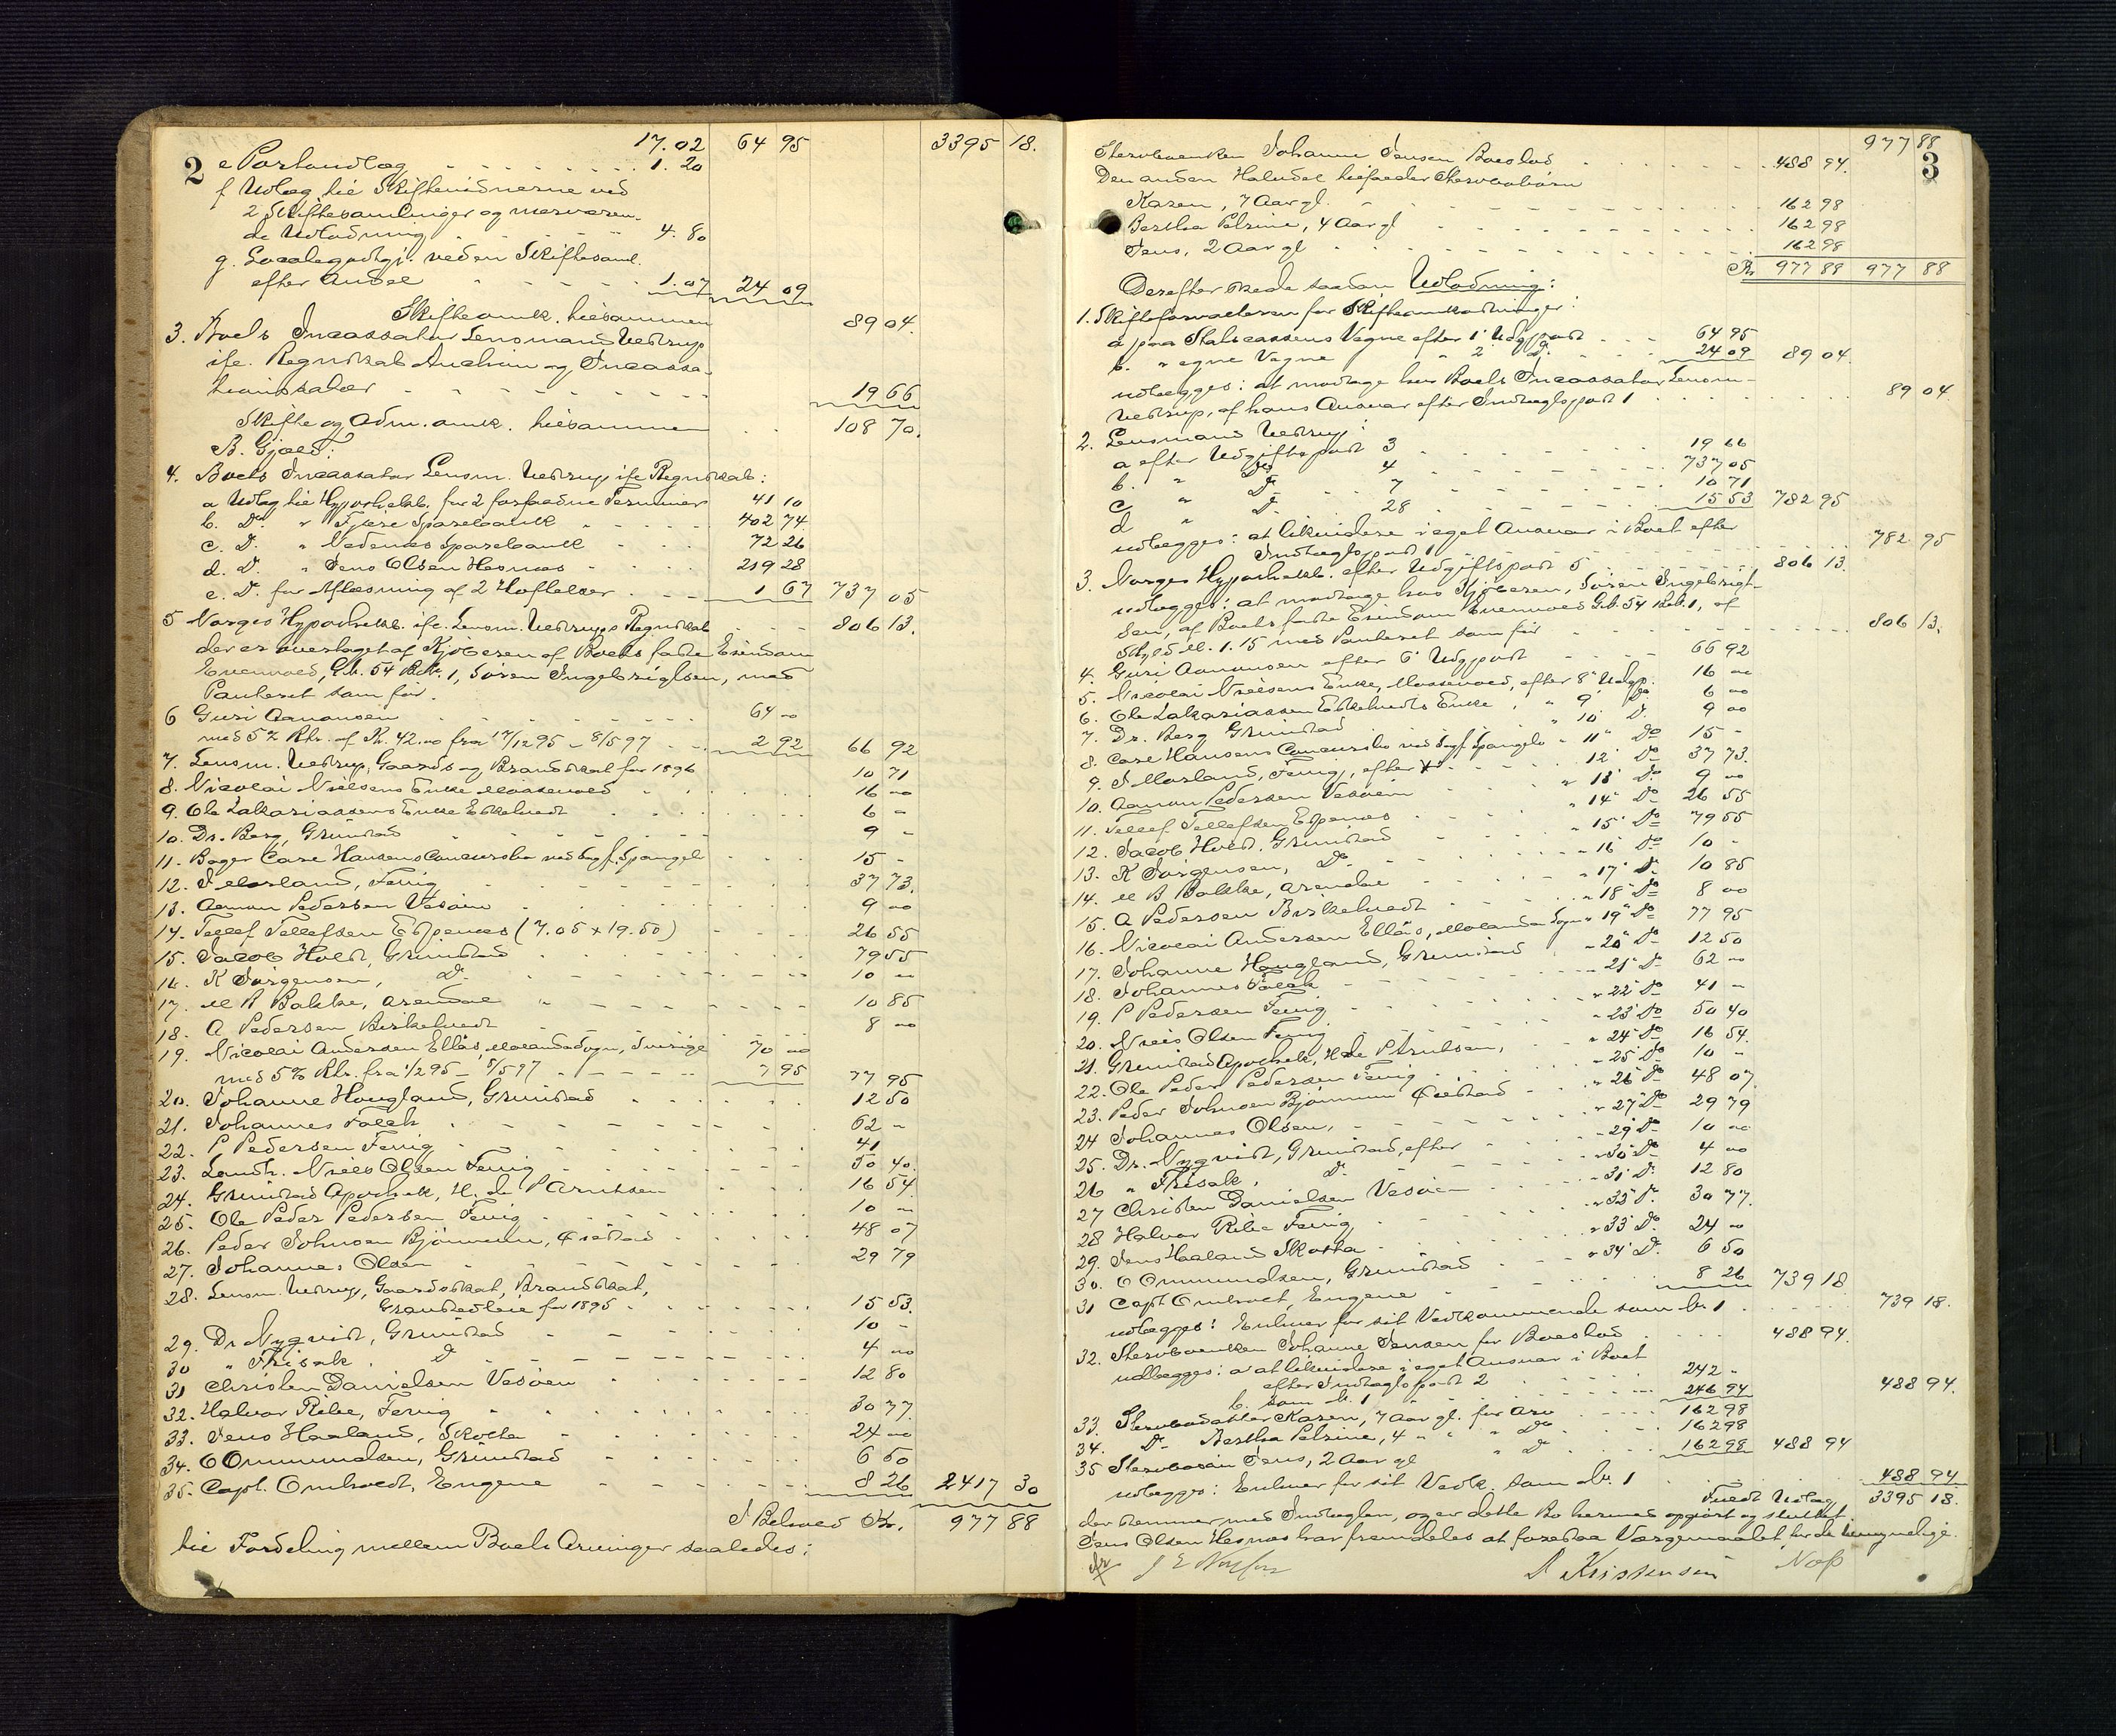 2
17.02 64 95 3395 18.
e Portoudlæg 1.20
f Udlæg til Skiftevidnerne ved
2 Skiftesamlinger og nærværen-
de Udlodning 4.80
g. Localegodtgj. ved en Skiftesaml.
efter Andel 1.07 24 09
Skifteomk. tilsammen 89 04.
3. Boets Incassator Lensmand Vedrup
ifl. Regnskab Auction og Incassa-
tionssalær 19 66
Skifte og Adm. omk. tilsammen 108 70.
B. Gjæld:
4. Boets Incassator Lensm. Vedrup ifl Regnskab:
a Udlæg til Hypothekb. for 2 forfaldne Terminer 41 10
b. Do " Fjære Sparebank 402 74.
c. D. " Nedenæs Sparebank 72 26
d. D. " Jens Olsen Hesnæs 219 28
e. D. for Aflæsning af 2 Heftelser 1 67 737 05
5 Norges Hypothekb. ifl. Lensm. Vedrups Regnskab 806 13.
der er overtaget af Kjøberen af Boets faste Eiendom
Gb. 54 Bb. 1, Søren Ingebrigtsen, med
Panteret som før.
6 Guri Aanonsen 64 "
med 5% Rtr. af Kr. 42.00 fra 17/12 95 - 8/5 97 2 92 66 92
7. Lensm. Vedrup, Gaards og Brandskat for 1896 10 71
8. Nicolai Nielsens Enke Mossevold 16 "
9. Ole Zakariassens Enke Eskelvedt 6 -
10. Dr. Berg, Grimstad 9 -
11. Bager Carl Hansens Concursbo ved Sagf. Spangelo 15 -
12. J Morland, Fevig 37 73.
13. Aanon Pedersen Vesøien 9 00
14. Tellef Tellefsen Espenæs (7.05 + 19.50) 26 55
15. Jacob Holst, Grimstad 79 55
16. K Jørgensen, Do 10 "
17. M B Bakke, Arendal 10 85
18. A Pedersen Birkelvedt 8 00
19. Nicolai Andersen Ellös, Morlandasogn, Sverige 70 00
med 5% Rtr. fra 1/2 95 - 8/5 97 7 95 77 95
20. Johanne Hougland, Grimstad 12 50
21. Johannes Falck 62 -
22. P Pedersen Fevig 41
23. Landh. Niels Olsen Fevig 50 40.
24. Grimstad Apothek, H. de P Arntsen 16 54.
25. Ole Peder Pedersen Fevig 10 -
26. Peder Johnsen Bjønnum, Øiestad 48 07
27. Johannes Olsen 29 79
28. Lensm. Vedrup, Gaardsskat, Brandskat,
for 1895 15 53.
29. Dr Nyqvist, Grimstad 10 -
30 " Frisak. D 4 00
31 Christen Danielsen Vesøien 12 80
32. Halvor Ribe, Fevig 30 77
33. Jens Haaland, Skotta 24 00
34. O Ommundsen, Grimstad 6 50
35. Capt. Omholt, Eugene 8 26 2417 30
I Behold Kr. 977 88
til Fordeling mellem Boets Arvinger saaledes:
3
977 88
Stervboenken Johanne Jensen for Boeslod 488 94.
Den anden Halvdel tilfalder Stervbobørn
Karen, 7 Aar gl. 162 98
Bertha Petrine, 4 Aar gl 162 98
Jens, 2 Aar gl 162 98
Kr. 977 88 977 88
Derefter skede saadan Udlodning:
1. Skifteforvalteren for Skifteomkostninger
a paa Statscassens Vegne efter 1' Udg.post 64 95
b. " egne Vegne " 2' D. 24 09 89 04.
udlægges: at modtage hos Boets Incassator Lensm-
Vedrup, af hans Ansvar efter Indtægtspost 1 89 04
2. Lensmand Vedrup:
a efter Udgiftspost 3 19 66
b. " Do 4 737 05
c " D. 7 10 71
d " D. 28 15 53 782 95
udlægges: at likvidere i eget Ansvar i Boet efter
Indtægtspost 1 782 95
3. Norges Hypothekb. efter Udgiftspost 5 806 13.
udlægges: at modtage hos Kjøberen, Søren Ingebrigt-
sen, af Boets faste Eiendom Gb. 54 Bb. 1, af
Skyld M. 1.15 med Panteret som før 806 13.
4. Guri Aanonsen efter 6' Udg.post 66 92
5. Nicolai Nielsens Enke, Mossevold, efter 8' Udgp. 16 "
6. Ole Zakariassen Eskelvedts Enke, " 9' Do 6 00
7. Dr. Berg Grimstad " 10' D. 9 00
8. Carl Hansens Concursbo ved Sagf. Spangelo " 11' Do 15 -
9. J Morland, Fevig, efter 12' Do 37 73.
10. Aanon Pedersen Vesøien " 13' Do 9 00
11. Tellef Tellefsen Espenæs " 14' Do 26 55
12. Jacob Holst, Grimstad " 15' Do 79 55
13. K Jørgensen, Do " 16' Do 10 -
14. M B Bakke, Arendal " 17' D. 10 85
15. A Pedersen Birkelvedt " 18' Do 8 00
16. Nicolai Andersen Ellös, Morlanda Sogn " 19' Do 77 95
17. Johanne Hougland, Grimstad " 20' Do 12 50
18. Johannes Falck " 21' D 62 "
19. P Pedersen Fevig " 22' Do 41 -
20. Niels Olsen Fevig " 23' Do 50 40
21. Grimstad Apothek, H de P Arntsen, " 24' Do 16 54.
22. Ole Peder Pedersen Fevig " 25' Do 10 -
23. Peder Johnsen Bjønnum Øiestad " 26' Do 48 07
24 Johannes Olsen, " 27' Do 29 79
25. Dr. Nyqvist, Grimstad, efter " 29' Do 10 00
26 " Frisak, D. " 30' Do 4 00
27 Christen Danielsen Vesøien " 31' D. 12 80
28 Halvor Ribe Fevig " 32' D. 30 77.
29. Jens Haaland Skotta " 33' Do 24 00
30. O Ommundsen, Grimstad " 34' D. 6 50
31 Capt Omholt, Eugene 8 26 739 18
udlægges: Enhver for sit Vedkommende som No. 1 739 18.
32. Stervboenken Johanne Jensen for Boeslod 488 94.
udlægges: a at likvidere i eget Ansvar i Boet
efter Indtægtspost 2 242 -
b. som No. 1 246 94 488 94.
33. Stervbodatter Karen, 7 Aar gl. for Arv 162 98
34. Do Bertha Petrine, 4 " " " Do 162 98
35 Stervbosøn Jens, 2 Aar gl " D 162 98 488 94
udlægges: Enhver for sit Vedk. som No. 1 488 94
Fuldt Udlæg 3395 18.
der stemmer med Indtægten, og er dette Bo hermed opgjort og sluttet.
Jens Olsen Hesnæs har fremdeles at forestaa Værgemaalet for de umyndige.
Kristensen